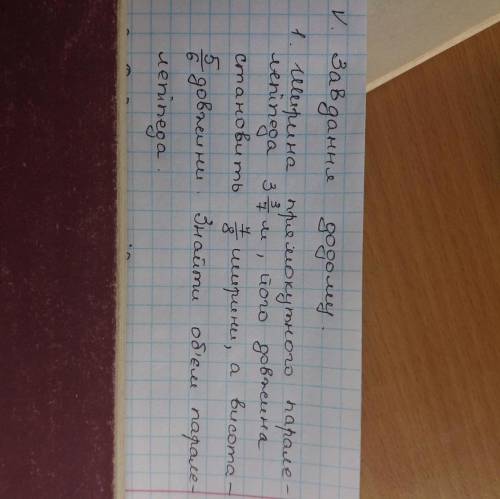 V. Завдання додому.
1. Ширина прямокутного парале-
лепіпеда 3 3/7 м, його довжина
становить 7/8 ширини, а висота -
5/6 довжини. Знайти об'єм парале-
лепіпеда.